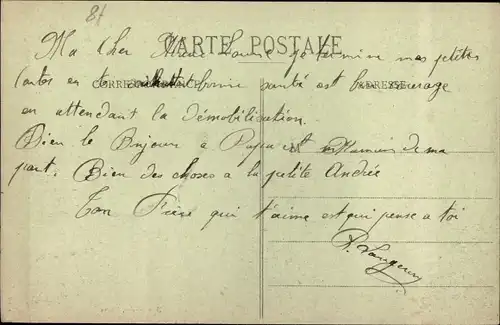 81
CARTE POSTALE
Ma Cher Louise je termine mes petites
Cartes en te bonne santé est bon courage
CORRESPONDANCE ADRESSE
en attendant la démobilisation.
Bien le Bonjour a Papa et Maman de ma
M
part. Bien des choses a la petite Andrée
Ton Frère qui t'aime est qui pense a toi